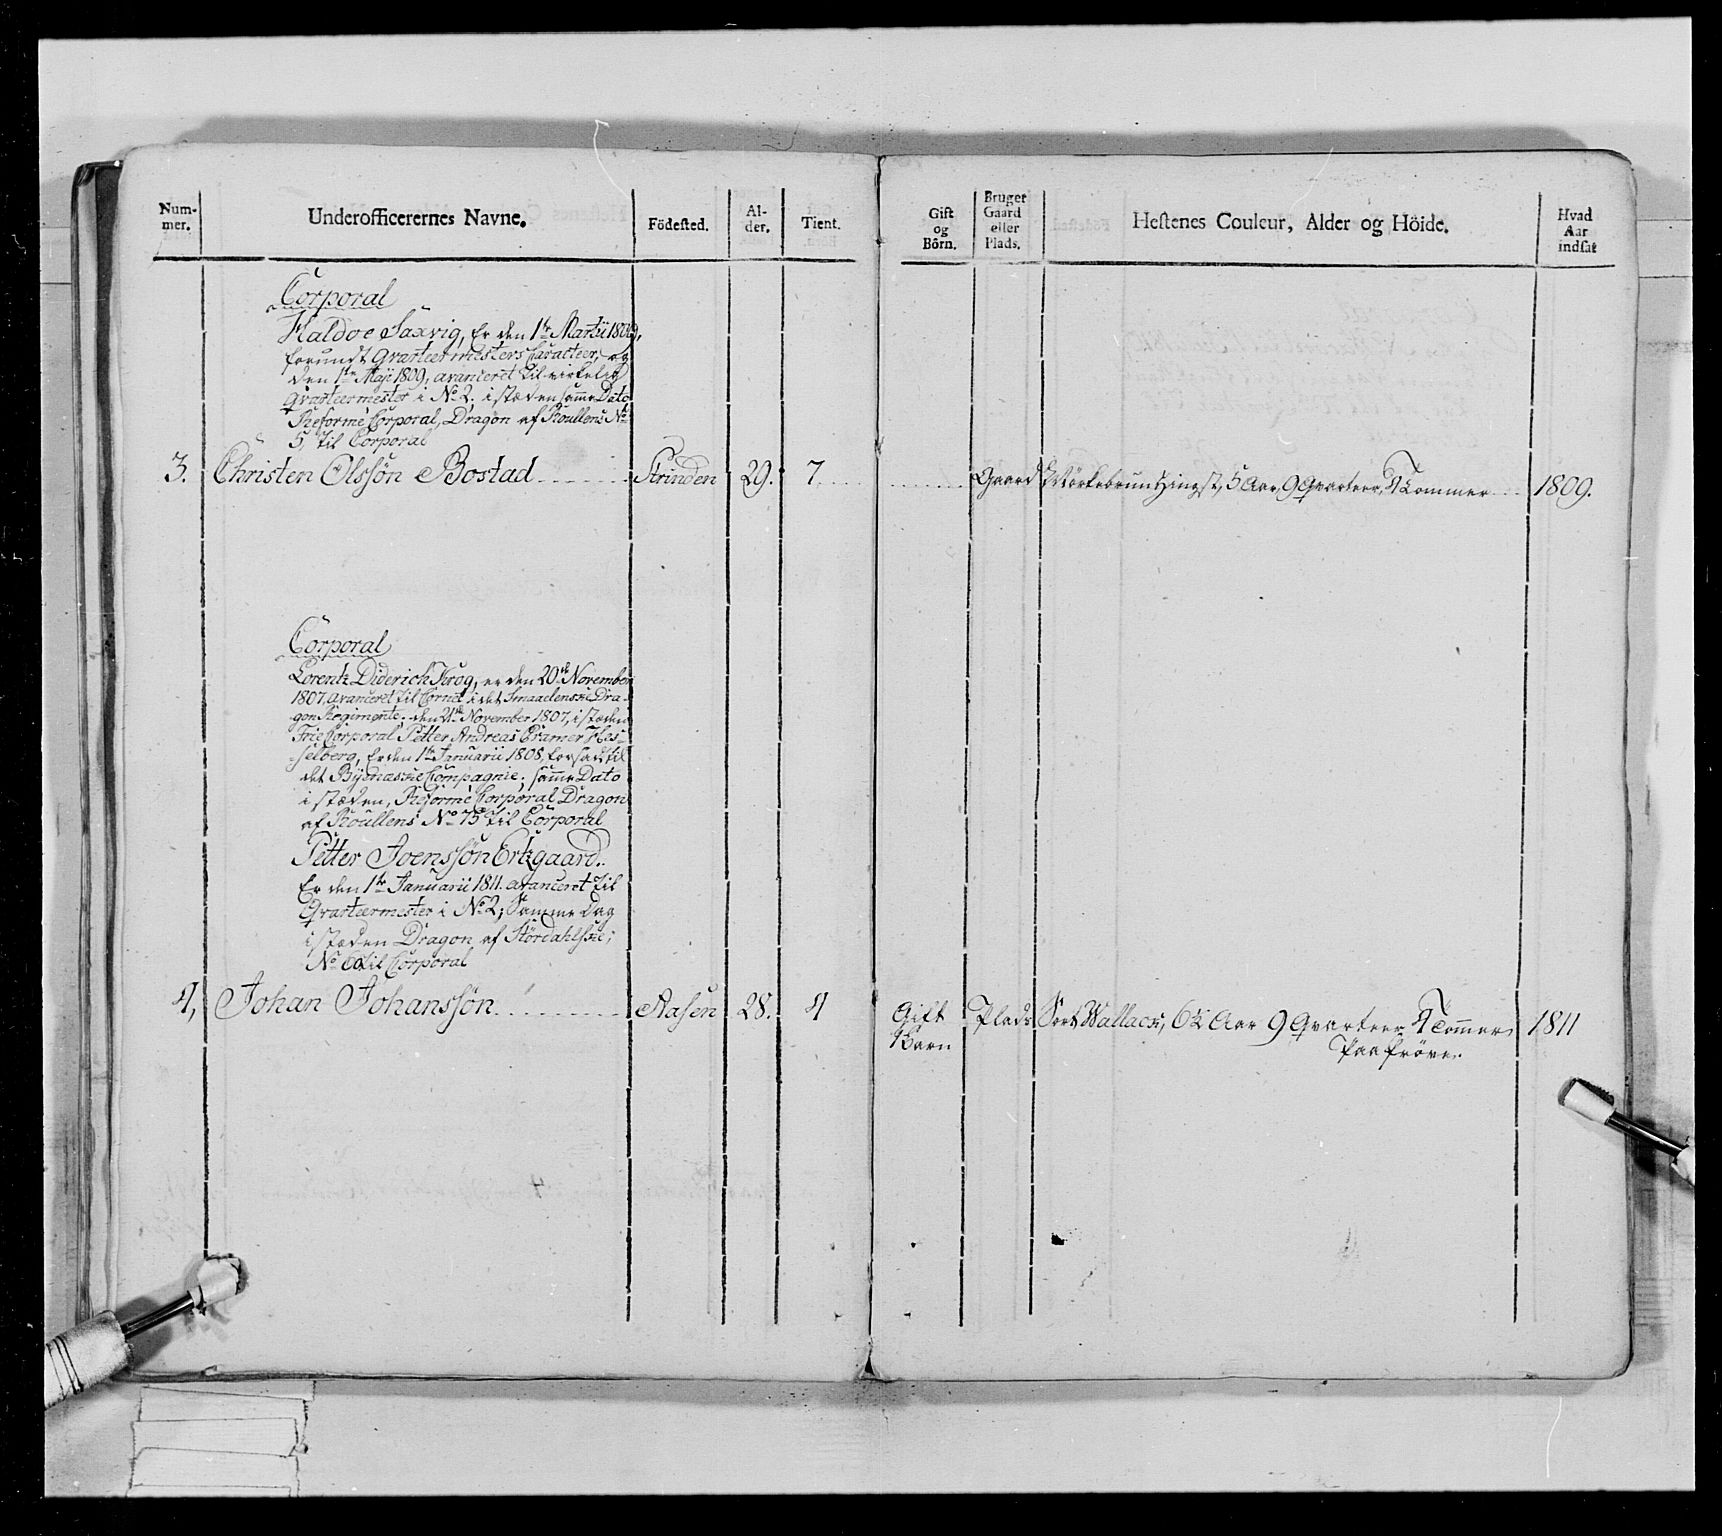 Num-
mer.
Underofficerernes Navne.
Födested.
Al-
der.
Tient.
Gift
og
Börn.
Bruger
Gaard
eller
Plads.
Hestenes Couleur, Alder og Höide.
Hvad
Aar
indsat
Corporal
Haldoe Saxvig, Er den 1te Martii 1809,
forundt Qvarteermesters Caracteer, og
den 1te Maji 1809, avanceret til virkelig
Qvarteermester i No 2. i stæden samme Dato
Reformé Corporal, Dragon af Roullens No
5, til Corporal
3. Christen Olssön Bostad Strinden 29. 7. Gaard Mörkebrun Hingst, 5 Aar, 9 Qvarteer, 1 Tommer 1809.
Corporal
Lorentz Diderich Krog, er den 20de November
1807, avanceret til Cornet i det Smaalenske Dra-
gon Regimente; den 21de November 1807, i stæden
Frie Corporal Petter Andreas Cramer Hes-
selberg, Er den 1te Januarii 1808, forsadt til
det Bynæske Compagnie; samme Dato
i stæden, Reformé Corporal Dragon
af Roullens No 75 til Corporal
Petter Joenssön Ertzgaard.
Er den 1te Januarii 1811. avanceret til
Qvarteermester i No 2; Samme Dag
i stæden Dragon af Stördahlske;
No 60 til Corporal
4, Johan Johanssön Aasen 28. 4 Gift Plads Sort Wallack, 6 1/2 Aar 9 Qvarteer 1 Tommer 1811
1 Barn Paa Pröve.